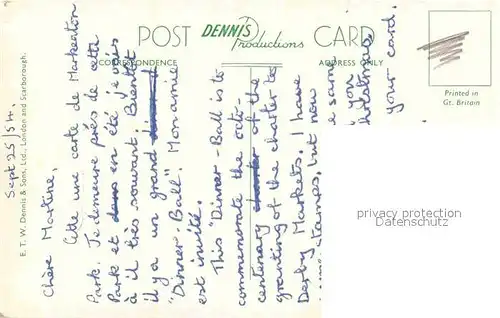 POST DENNIS Productions CARD
CORRESPONDENCE ADDRESS ONLY
Printed in
Gt. Britain
E. T. W. Dennis & Sons, Ltd., London and Scarborough.
Sept 25/54.
Chère Martine,
Cette une carte de Markeaton
Park. Je demeure près de cette
Park et en été je vais
à il très souvent. Bientôt
il y a un grand
"Dinner-Ball". Mon amie
est invité.
This "Dinner-Ball is to
commemorate the octo-
centenary of the
granting of the charter to
Derby Markets. I have
stamps, but now
e same
you
holidays,
your card.
privacy protection
watermark